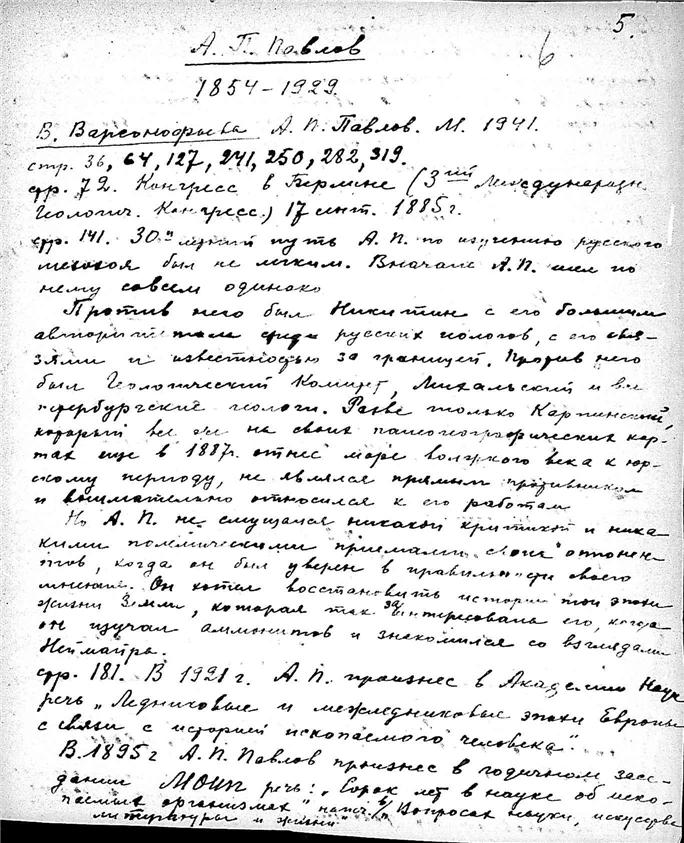 5.
6
А. П. Павлов
1854–1929.
В. Варсонофьева А. П. Павлов. М. 1941.
стр. 36, 64, 127, 241, 250, 282, 319.
стр. 72. Конгресс в Берлине (3ий Международн.
Геологич. Конгресс.) 17 сент. 1885 г.
стр. 141. 30и летний путь А. П. по изучению русского
мезозоя был не легким. Вначале А. П. шел по
нему совсем одиноко
Против него был Никитин с его большим
авторитетом среди русских геологов, с его свя-
зями и известностью за границей. Против него
был Геологический Комитет, Михальский и все
петербургские геологи. Разве только Карпинский,
который все же на своих палеогеографических кар-
тах еще в 1887г. отнес море волжского века к юр-
скому периоду, не являлся прямым противником
и внимательно относился к его работам
Но А. П. не смущался никакой критикой и ника-
кими полемическими приемами своих оппонен-
тов, когда он был уверен в правильности своего
мнения. Он хотел восстановить историю той эпохи
жизни Земли, которая так заинтересовала его, когда
он изучал аммонитов и знакомился со взглядами
Неймайра.
стр. 181. В 1921 г. А. П. произнес в Академии Наук
речь „Ледниковые и межледниковые эпохи Европы
с связи с историей ископаемого человека".
В 1895 г А. П. Павлов произнес в годичном засе-
дании МОИП речь: „Сорок лет в науке об иско-
паемых организмах" напеч. в „Вопросах науки, искусства
литературы и жизни"